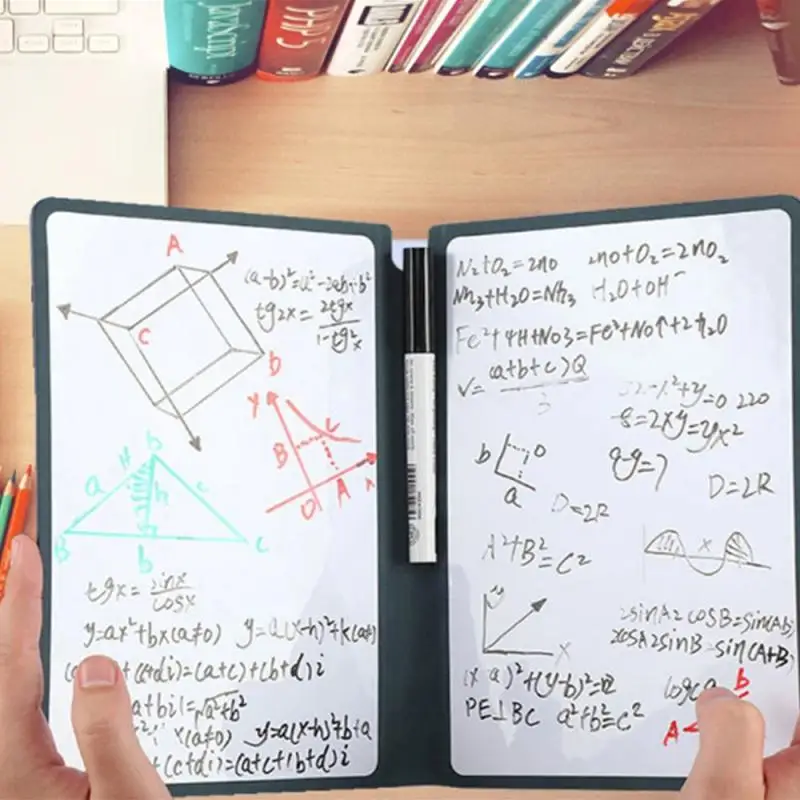 A
C
D
(a-b)²=a²-2ab+b²
tg2x= 2tgx
1-tg²x
Y
B
C
O
A
x
b
H
a
h
c
B
b
C
tgx= sinx
cosx
y=ax²+bx(a≠0) y=a(x-h)²+k(a≠
+(c+di)=(a+c)+(b+d)i
a+bi|=√a²+b²
x(a≠0) y=a(x-h)²+b+a
+(c+di)=(a+c+1b+d)i
N₂+O₂=2no 2no+O₂=2nO₂
Nh₃+H₂O=Nh₃ H₂O+OH⁻
Fe²+4H+No3=Fe³+No↑+2h₂O
V= (a+b+c)Q
3
+y=0 220
8=2xy=yx²
q-y=7
b
O
a
D=2R
D=2R
A²+B²=C²
x
y
X
2sinA2cosB=sin(Ab)
2cosA2sinB=sin(A+B)
(x-a)²+(y-b)²=
PE⊥BC a²+b²=c²
logca
b
A<